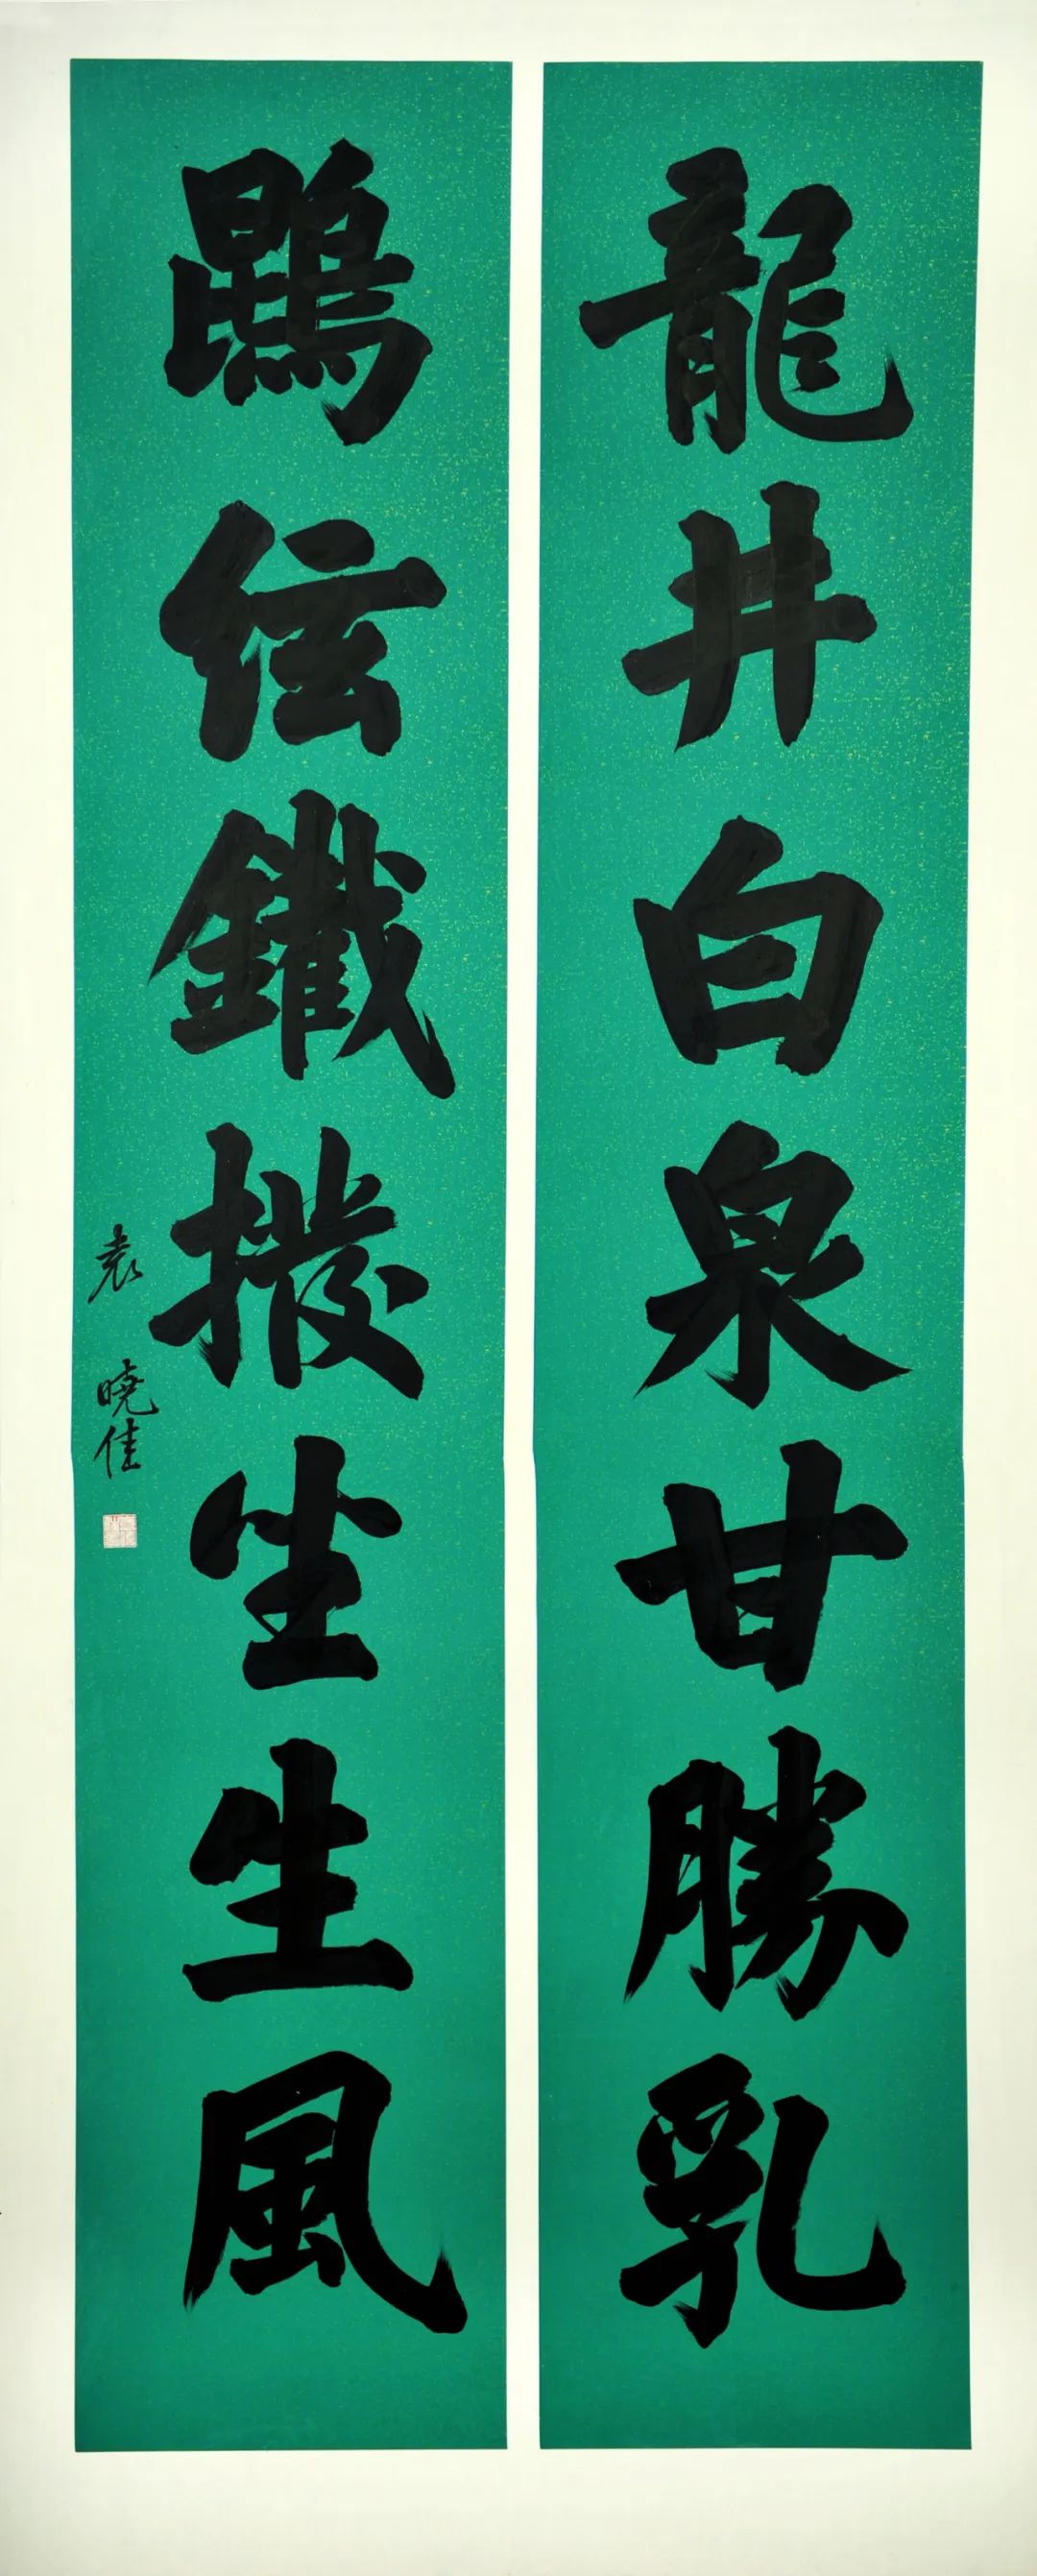 龍井白泉甘勝乳
鵾弦鐵撥坐生風
袁曉佳